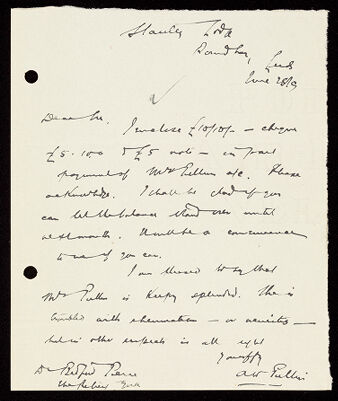 Stanley Lodge
Roundhay, Leeds
June 28/9
Dear Sir. I enclose £10/10/- – cheque
£5.10.0 & £5 note – in part
payment of Mrs Pullin's a/c. Please
acknowledge. I shall be glad if you
can let the balance stand over until
next month. It will be a convenience
to me if you can.
I am pleased to say that
Mrs Pullin is keeping splendid. She is
troubled with rheumatism – or neuritis –
but in other respects is all right
Yours ffy
A W Pullin
Dr Bedford Pierce
The Retreat York